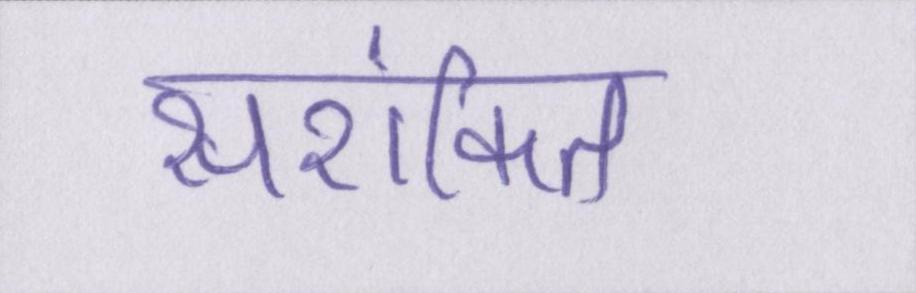 स्वरांकित